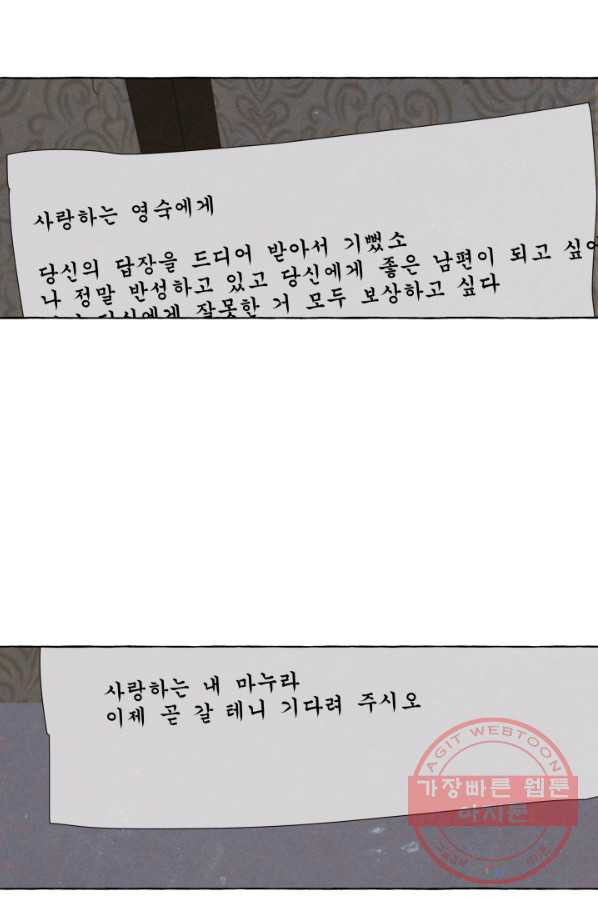 사랑하는 영숙에게
당신의 답장을 드디어 받아서 기뻤소
나 정말 반성하고 있고 당신에게 좋은 남편이 되고 싶어
당신에게 잘못한 거 모두 보상하고 싶다
사랑하는 내 마누라
이제 곧 갈 테니 기다려 주시오
AGIT WEBTOON
가장빠른 웹툰
아지툰